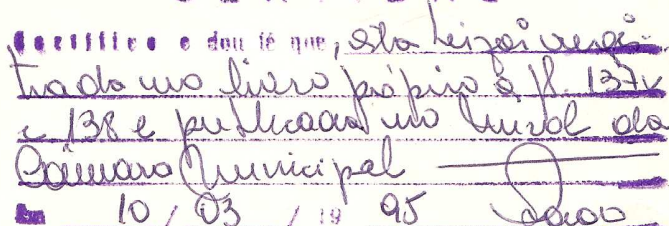 Certifico e dou fé que, esta Lei foi regis-
trada no livro própio à fl. 137v
e 138 e publicada no mural da
Câmara Municipal
Em 10 / 03 / 19 95